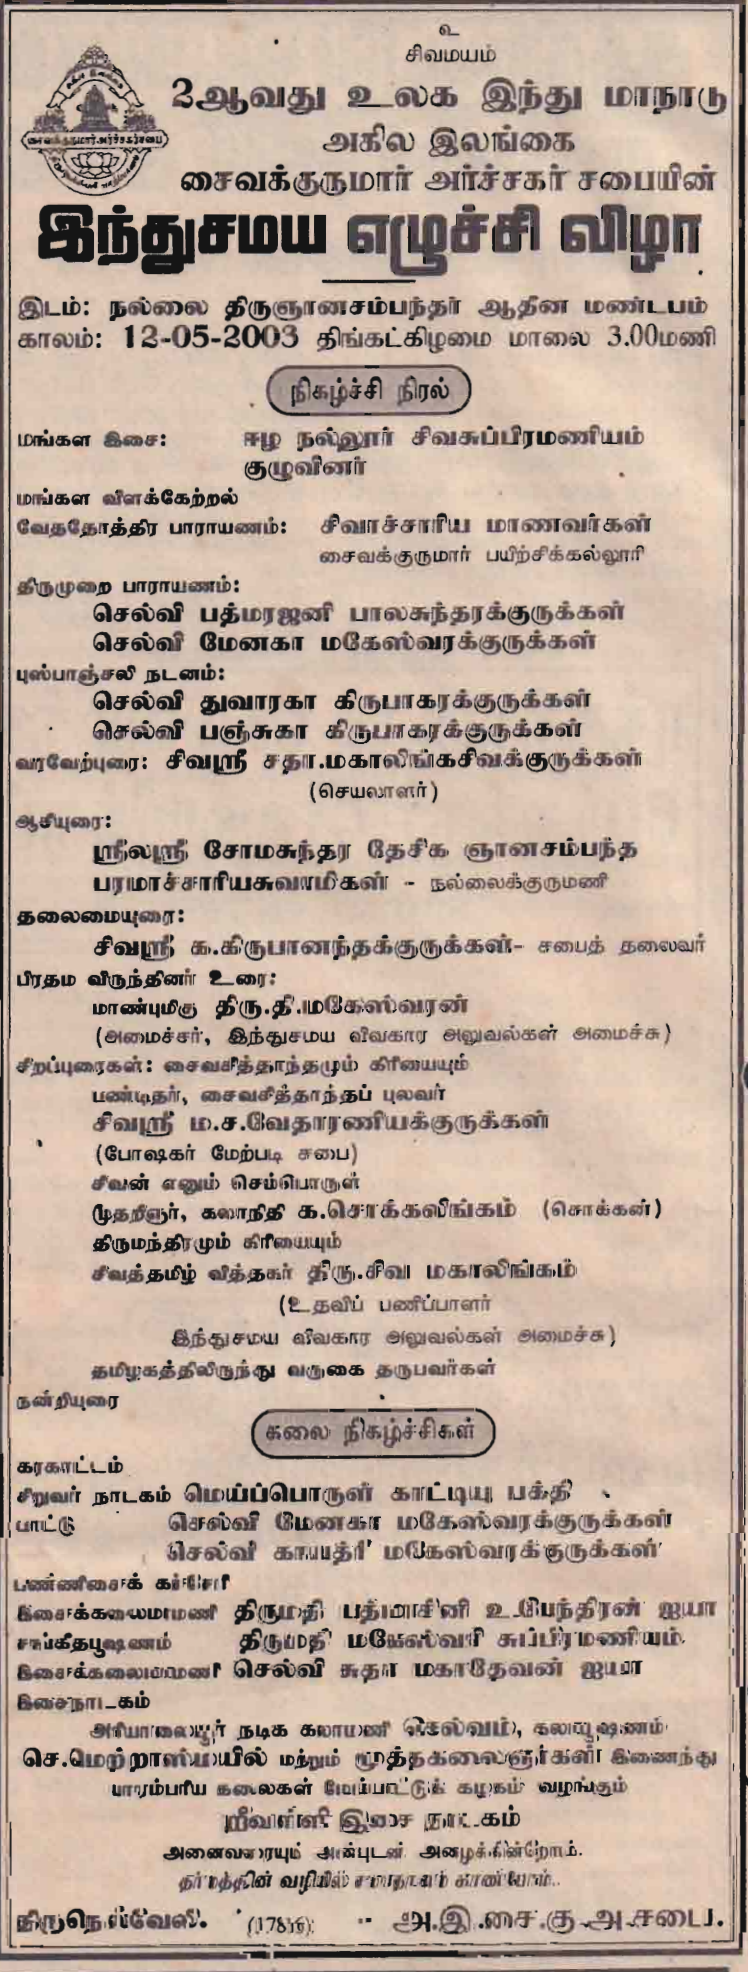 உ
சிவமயம்
2ஆவது உலக இந்து மாநாடு
அகில இலங்கை
சைவக்குருமார் அர்ச்சகர் சபையின்
இந்துசமய எழுச்சி விழா
இடம்: நல்லை திருஞானசம்பந்தர் ஆதீன மண்டபம்
காலம்: 12-05-2003 திங்கட்கிழமை மாலை 3.00மணி
நிகழ்ச்சி நிரல்
மங்கள இசை: ஈழ நல்லூர் சிவசுப்பிரமணியம்
குழுவினர்
மங்கள விளக்கேற்றல்
வேததோத்திர பாராயணம்: சிவாச்சாரிய மாணவர்கள்
சைவக்குருமார் பயிற்சிக்கல்லூரி
திருமுறை பாராயணம்:
செல்வி பத்மரஜனி பாலசுந்தரக்குருக்கள்
செல்வி மேனகா மகேஸ்வரக்குருக்கள்
புஸ்பாஞ்சலி நடனம்:
செல்வி துவாரகா கிருபாகரக்குருக்கள்
செல்வி பஞ்சுகா கிருபாகரக்குருக்கள்
வரவேற்புரை: சிவஸ்ரீ சதா.மகாலிங்கசிவக்குருக்கள்
(செயலாளர்)
ஆசியுரை:
ஸ்ரீலஸ்ரீ சோமசுந்தர தேசிக ஞானசம்பந்த
பரமாச்சாரியசுவாமிகள் - நல்லைக்குருமணி
தலைமையுரை:
சிவஸ்ரீ க.கிருபானந்தக்குருக்கள்- சபைத் தலைவர்
பிரதம விருந்தினர் உரை:
மாண்புமிகு திரு.தி.மகேஸ்வரன்
(அமைச்சர், இந்துசமய விவகார அலுவல்கள் அமைச்சு)
சிறப்புரைகள்: சைவசித்தாந்தமும் கிரியையும்
பண்டிதர், சைவசித்தாந்தப் புலவர்
சிவஸ்ரீ ம.ச.வேதாரணியக்குருக்கள்
(போஷகர் மேற்படி சபை)
சிவன் எனும் செம்பொருள்
முதறிஞர், கலாநிதி க.சொக்கலிங்கம் (சொக்கன்)
திருமந்திரமும் கிரியையும்
சிவத்தமிழ் வித்தகர் திரு.சிவ மகாலிங்கம்
(உதவிப் பணிப்பாளர்
இந்துசமய விவகார அலுவல்கள் அமைச்சு)
தமிழகத்திலிருந்து வருகை தருபவர்கள்
நன்றியுரை
கலை நிகழ்ச்சிகள்
கரகாட்டம்
சிறுவர் நாடகம் மெய்ப்பொருள் காட்டிய பக்தி
பாட்டு செல்வி மேனகா மகேஸ்வரக்குருக்கள்
செல்வி காயத்ரி மகேஸ்வரக்குருக்கள்
பண்ணிசைக் கச்சேரி
இசைக்கலைமாமணி திருமதி பத்மாசினி உபேந்திரன் ஐயா
சங்கீதபூஷணம் திருமதி மகேஸ்வரி சுப்பிரமணியம்
இசைக்கலைமாமணி செல்வி சுதா மகாதேவன் ஐயா
இசைநாடகம்
அரியாலையூர் நடிக கலாமணி செல்வம், கலாபூஷணம்
செ.மெற்றாஸ்மயில் மற்றும் மூத்தகலைஞர்களி இணைந்து
பாரம்பரிய கலைகள் மேம்பாட்டுக் கழகம் வழங்கும்
ஸ்ரீவள்ளி இசை நாடகம்
அனைவரையும் அன்புடன் அழைக்கின்றோம்.
தர்மத்தின் வழியில் சமாதானம் காண்போம்.
திருநெல்வேலி. அ.இ.சை.கு.அ.சபை.